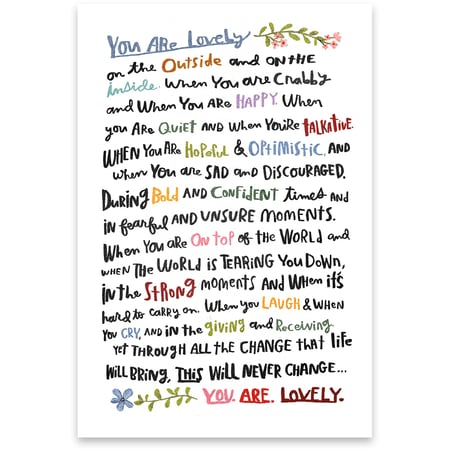 You ARe Lovely
on the OutSide and on the
inside. When You are Crabby
and When You ARe HAPPY. When
you ARe Quiet AND when You're TALKATIVE.
WHEN You ARe Hopeful & OPtiMistic, AND
when You are SAD and DISCOURAGED.
DURING Bold AND CONFIDENT times AND
in fearful AND UNSURE MOMENTS.
When You are On top of the WORLD and
WHEN THE WORLD is TEARING You DOWN,
in the STRONG moments AND WHen it's
hard to CARRY on. When you LAUGH & WHEN
You CRY, AND in the giving and Receiving
Yet THROUGH ALL THE CHANGE THAT life
WiLL BRING, THIS WiLL NEVER CHANGE...
YOU. ARE. LOVELY.